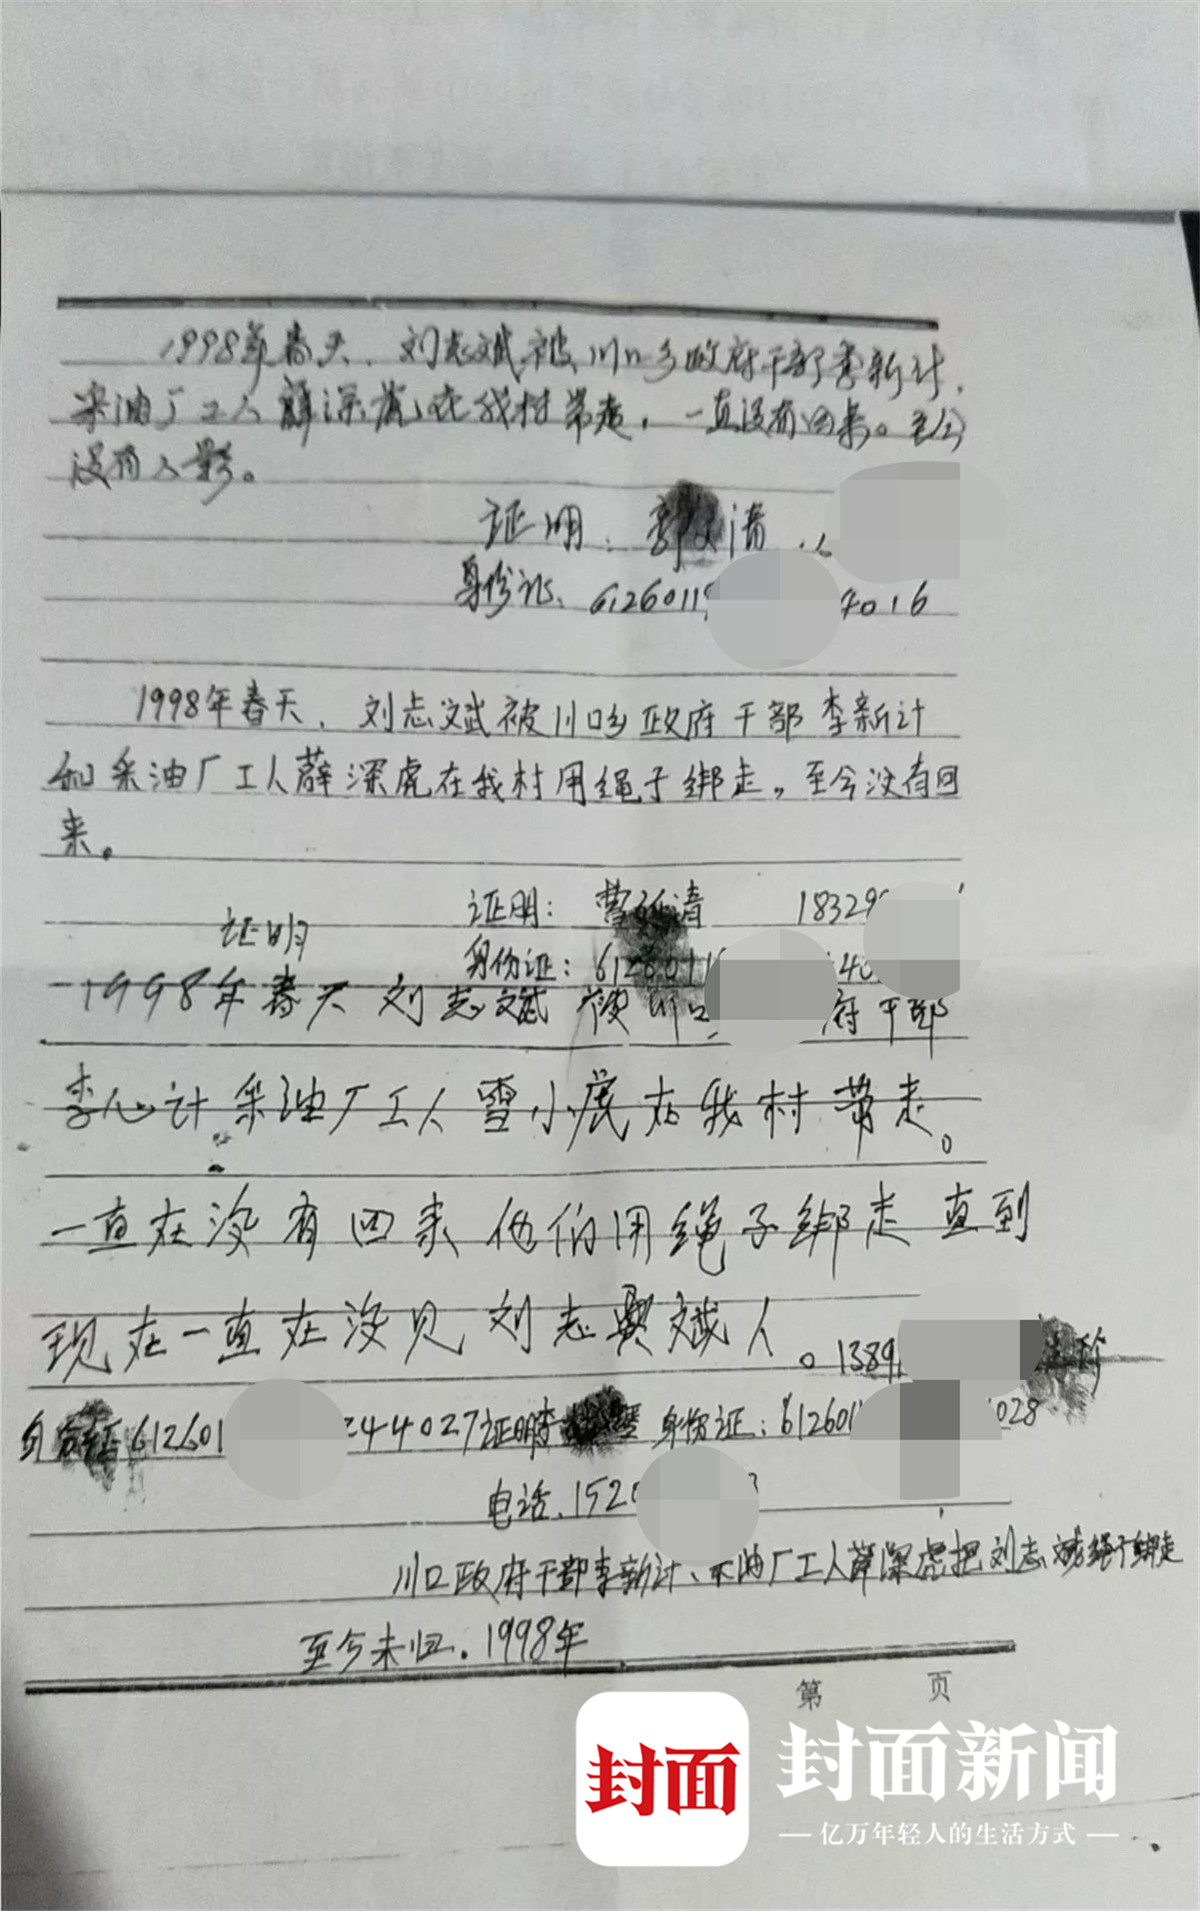 1998年春天、刘志斌被川口乡政府干部李新计、
采油厂工人薛深虎在我村带走，一直没有回来。至今
没有人影。
证明：郭 清
身份证、6126011 4016
1998年春天、刘志斌被川口乡政府干部李新计
和采油厂工人薛深虎在我村用绳子绑走。至今没有回
来。
证明：曹 清 18329
证明
身份证：6126011 40
1998年春天刘志斌被川口 府干部
李心计采油厂工人雪小虎在我村带走。
一直在没有回来他们用绳子绑走直到
现在一直在没见刘志斌人。1389 珍
身份证612601 244027证明李 身份证：612601 028
电话.152
川口政府干部李新计、采油厂工人薛深虎把刘志斌绳子绑走
至今未归.1998年
第 页
封面
封面新闻
亿万年轻人的生活方式